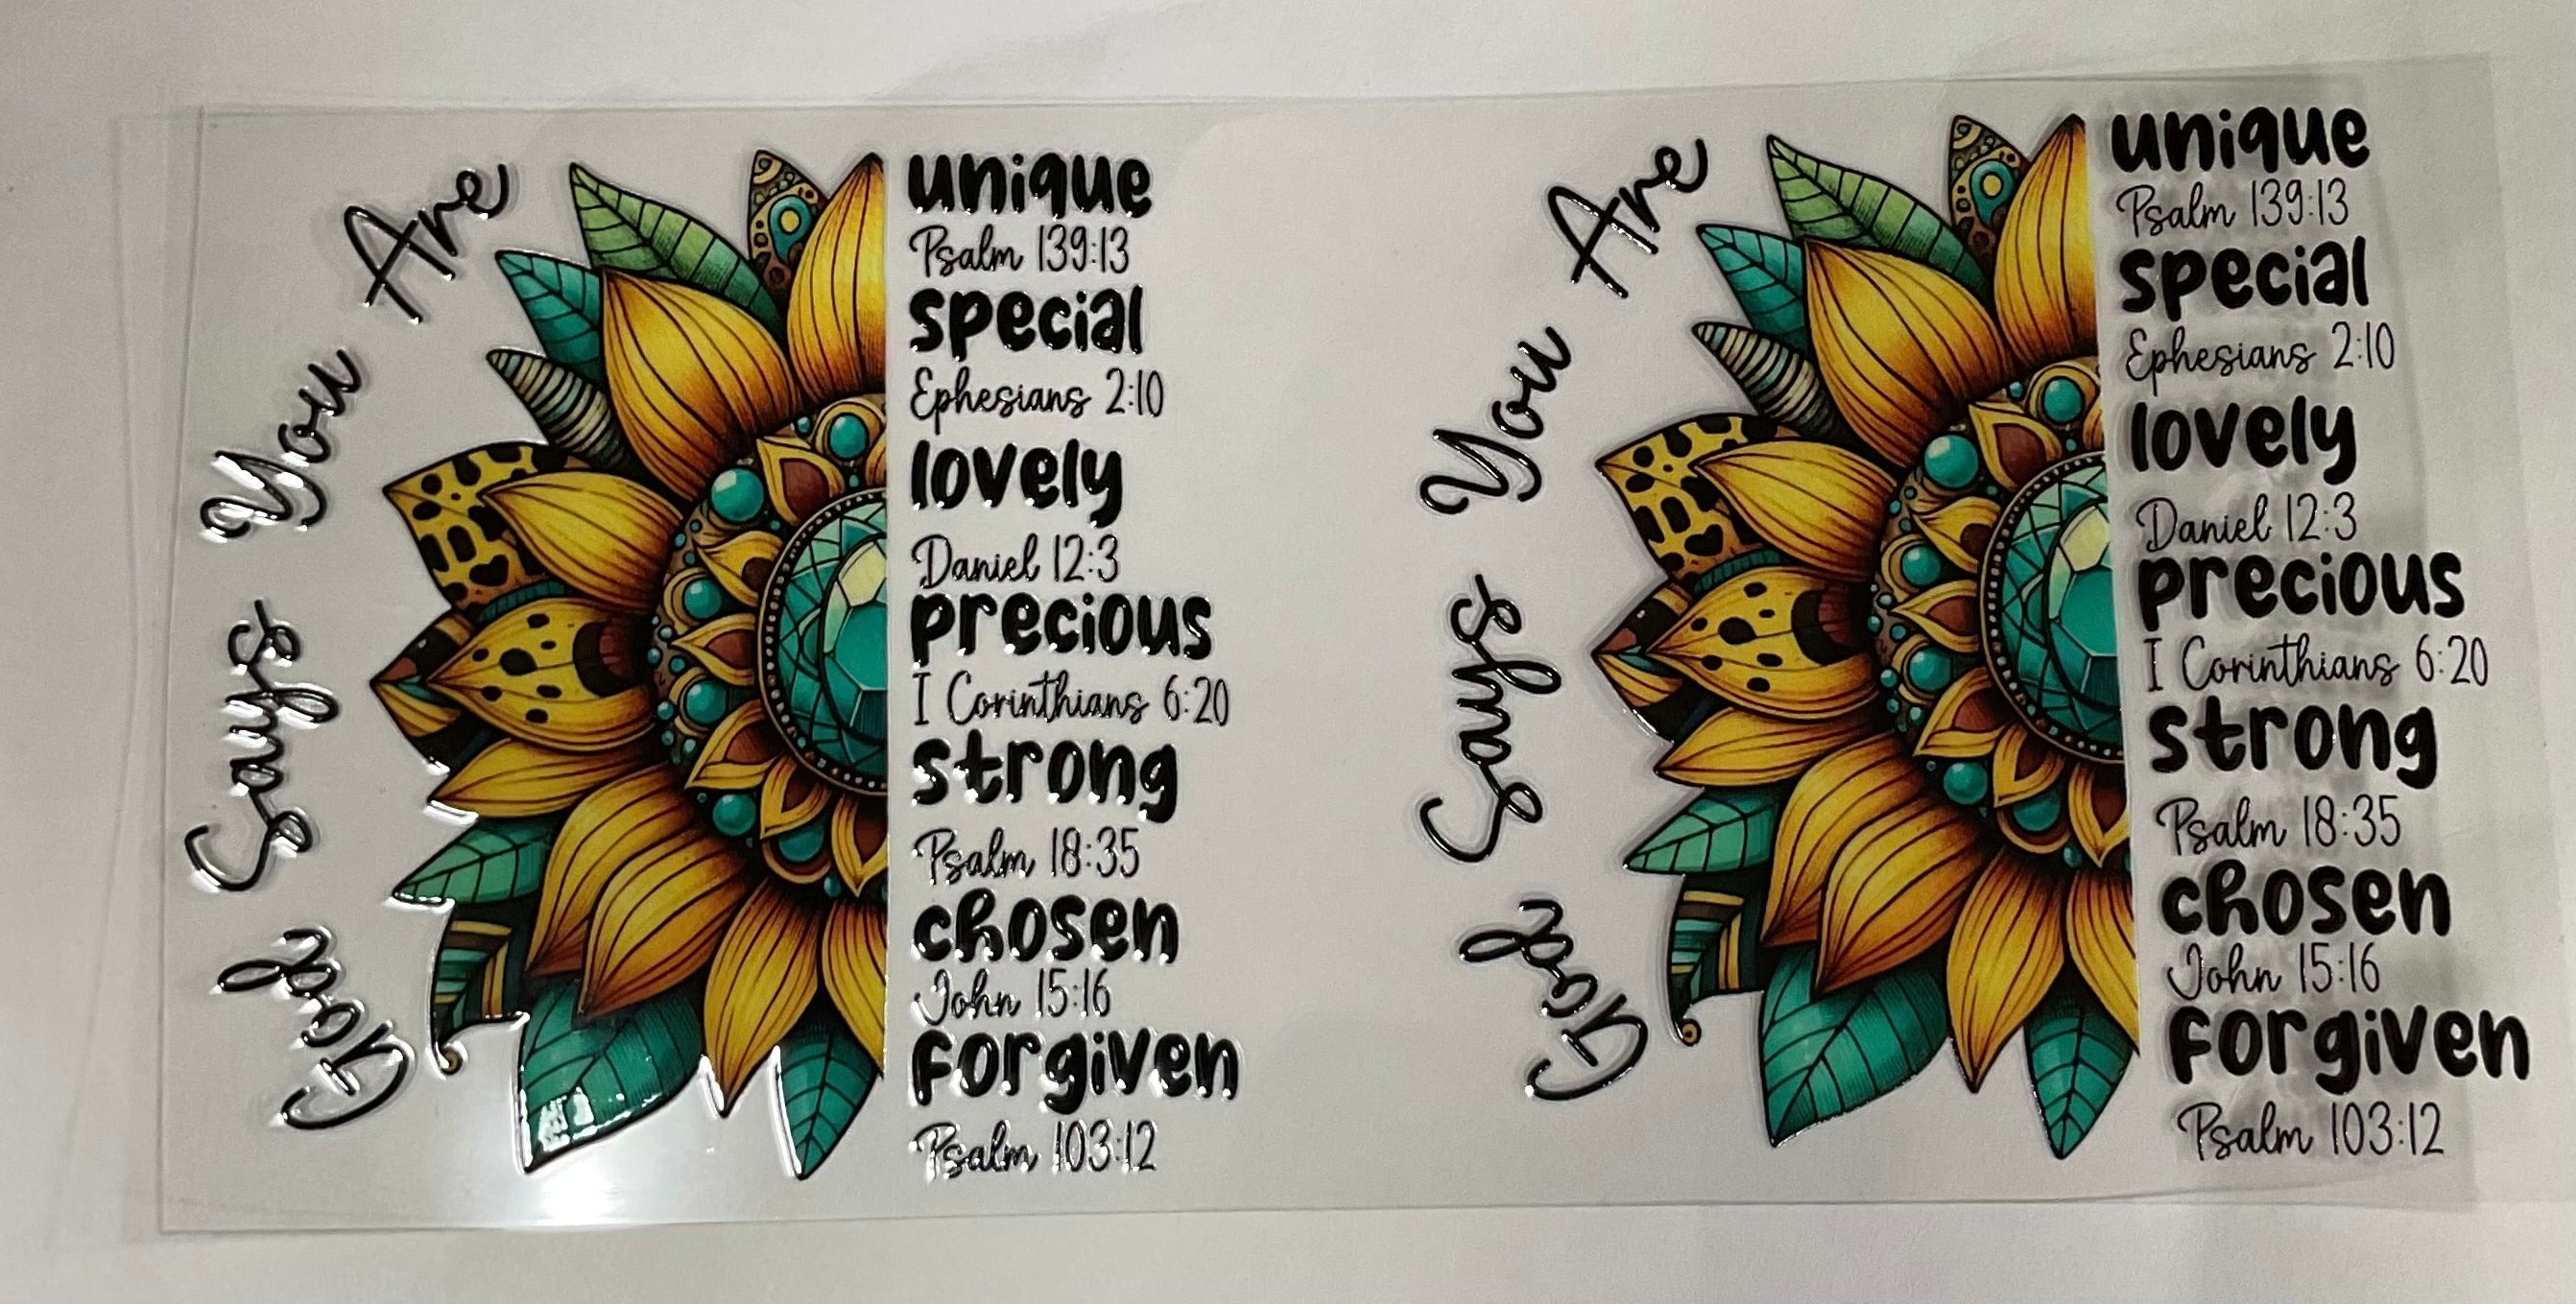 God Says You Are
unique
Psalm 139:13
special
Ephesians 2:10
lovely
Daniel 12:3
precious
I Corinthians 6:20
strong
Psalm 18:35
chosen
John 15:16
forgiven
Psalm 103:12
God Says You Are
unique
Psalm 139:13
special
Ephesians 2:10
lovely
Daniel 12:3
precious
I Corinthians 6:20
strong
Psalm 18:35
chosen
John 15:16
forgiven
Psalm 103:12